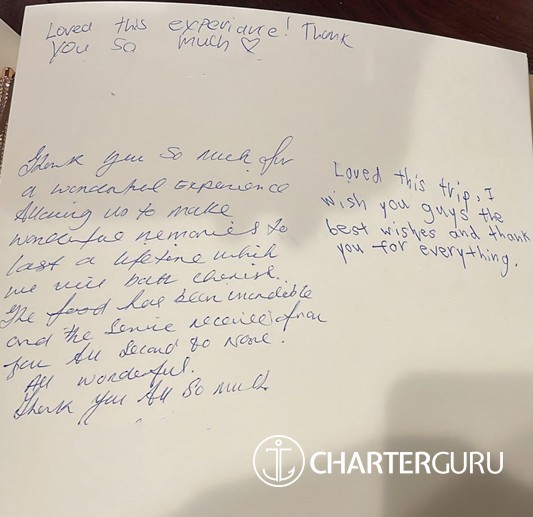 Loved this experiance! Thank
you so much ♡
Thank you so much for
a wonderful experience
Allowing us to make
wonderful memories to
last a lifetime which
we will both cherish.
The food has been incredible
and the service received from
you All second to none.
All wonderful.
Thank you All so much
Loved this trip, I
wish you guys the
best wishes and thank
you for everything.
CHARTERGURU